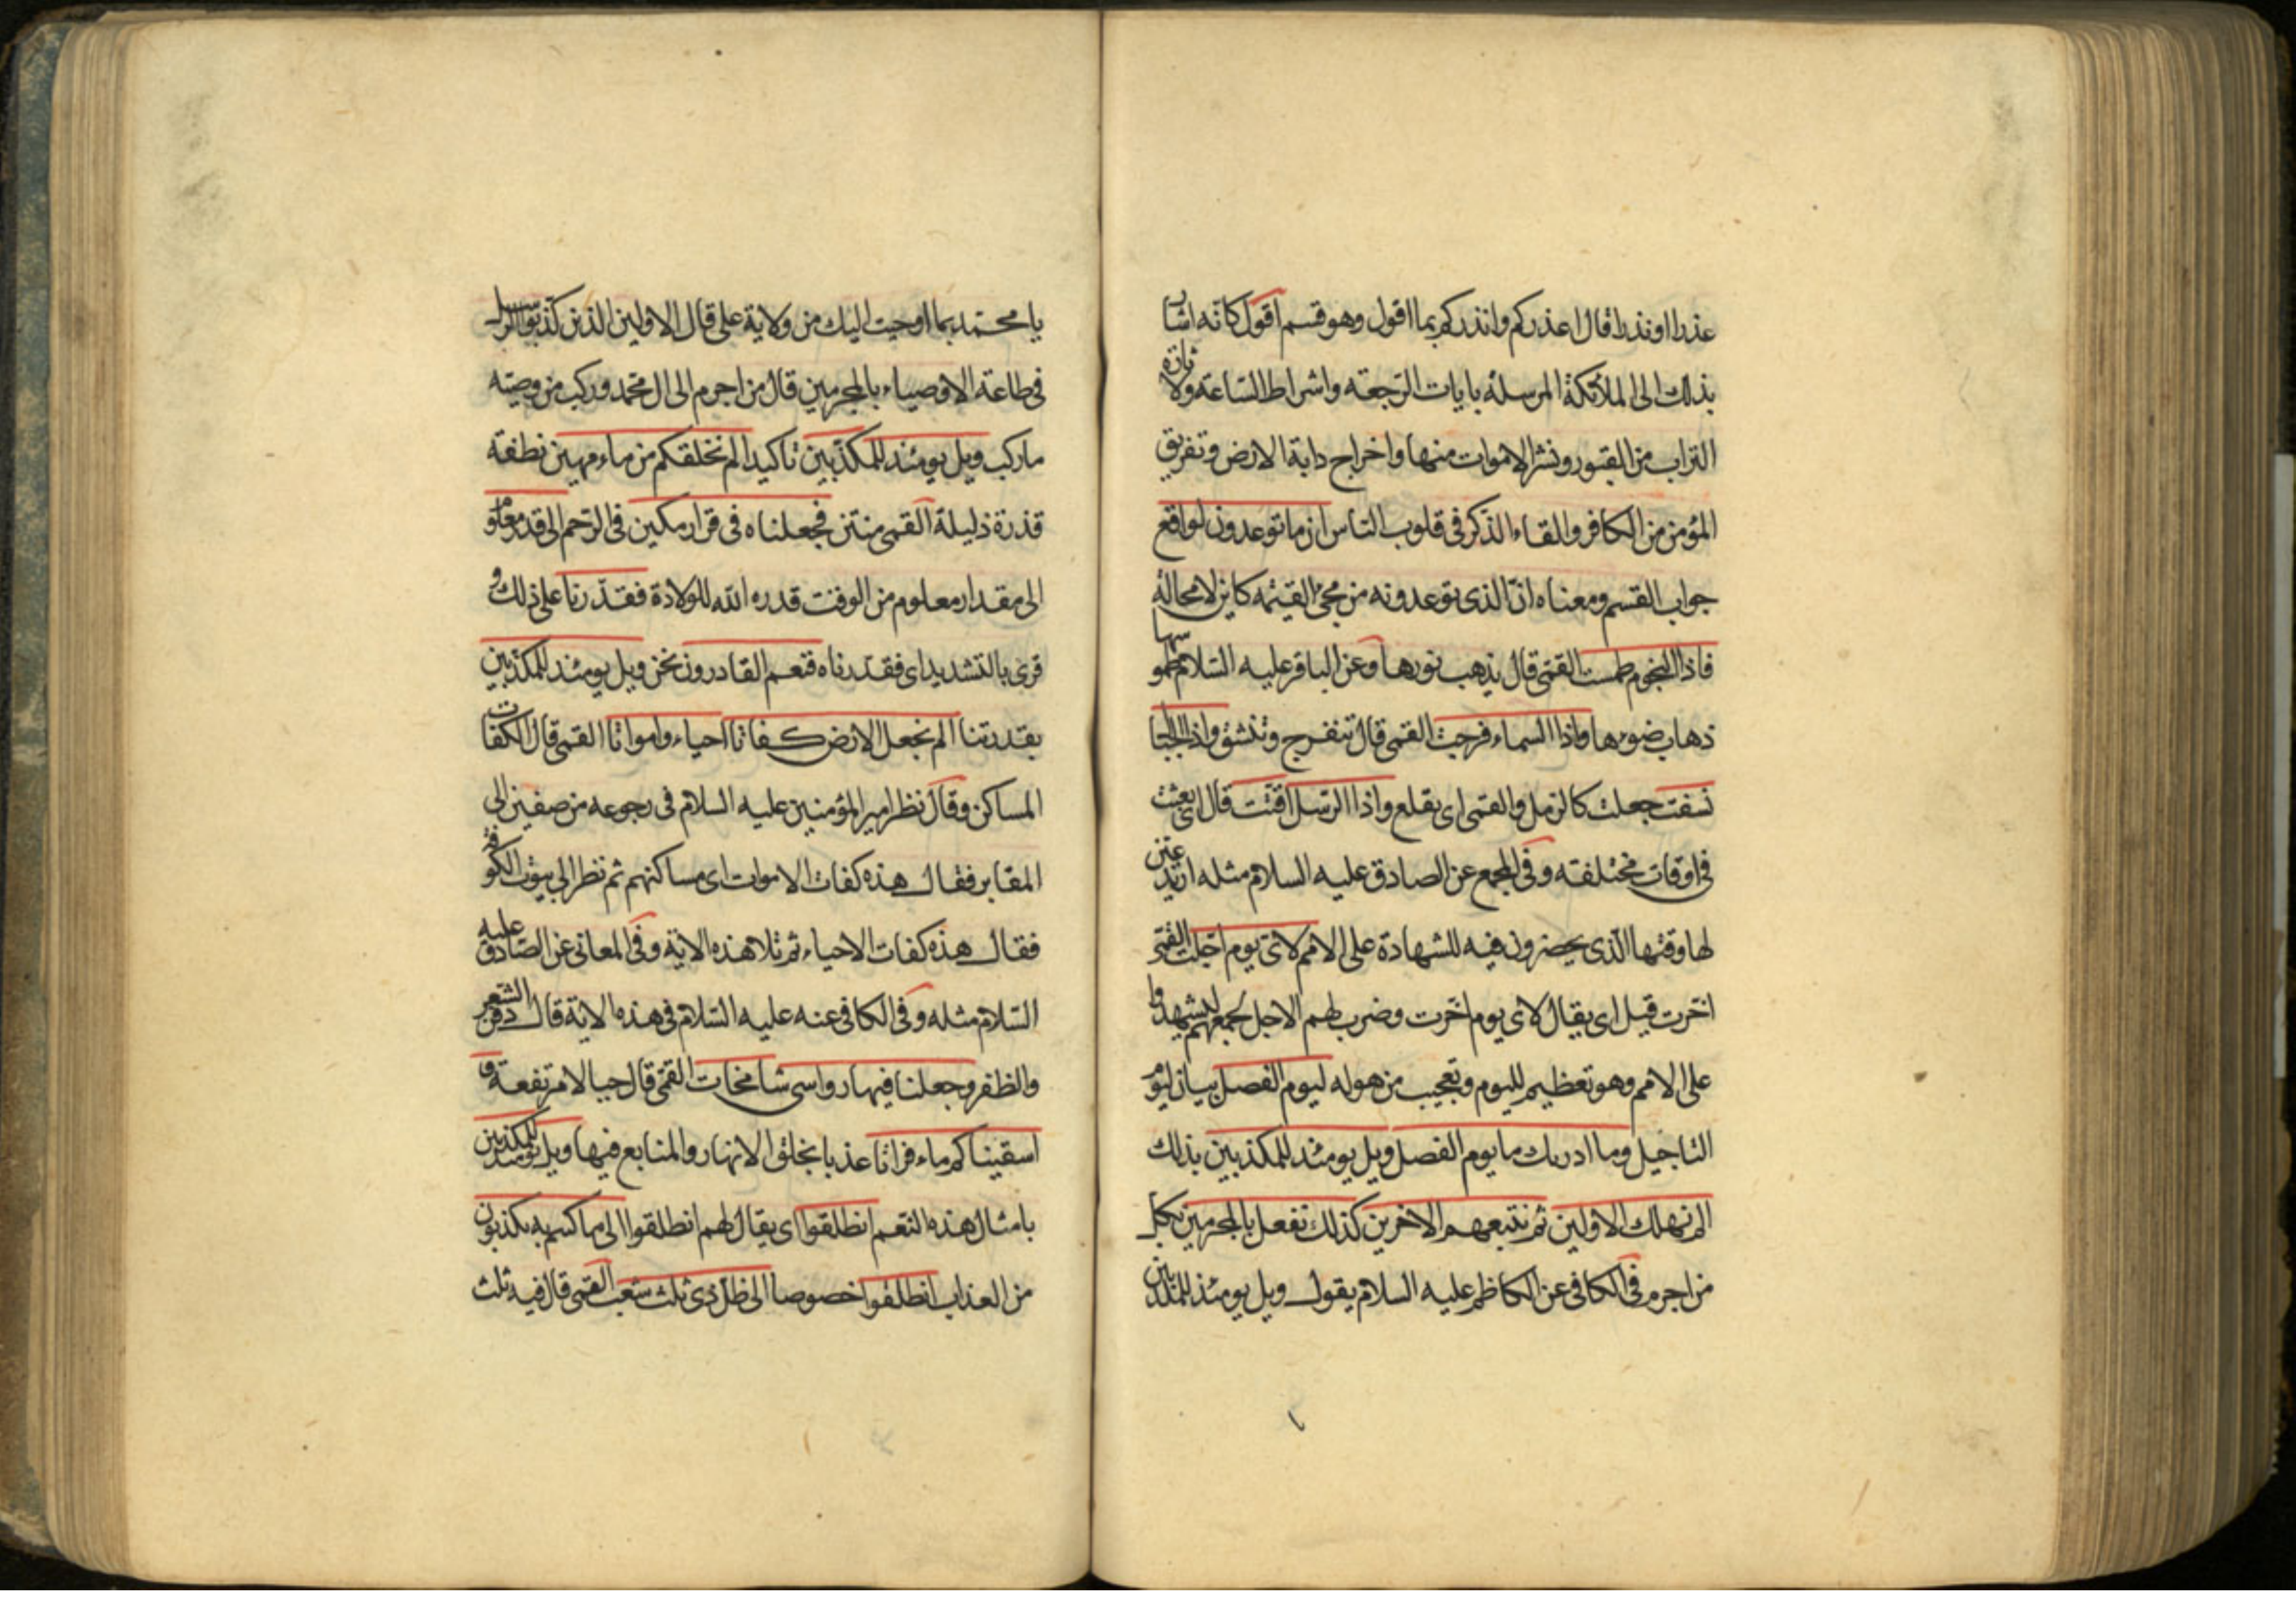 عذرا او نذرا قال اعذركم وانذركم بما اقول وهو قسم اقول كانه اشار
بذلك الى الملائكة المرسلة بايات الرجعة واشراط الساعة ولاثارة
التراب من القبور ونشر الاموات منها واخراج دابة الارض وتفريق
المؤمن من الكافر والقاء الذكر في قلوب الناس ان ما توعدون لواقع
جواب القسم ومعناه ان الذى توعدونه من مجئ القيمة كاين لا محالة
فاذا النجوم طمست القمى قال يذهب نورها وعن الباقر عليه السلام طموسها
ذهاب ضوءها واذا السماء فرجت القمى قال تنفرج وتنشق واذا الجبال
نسفت جعلت كالرمل والقمى اى يقلع واذا الرسل اقتت قال اى بعثت
في اوقات مختلفة وفي المجمع عن الصادق عليه السلام مثله اريد عين
لها وقتها الذى يحضرون فيه للشهادة على الامم لاى يوم اجلت القمى
اخرت قيل اى يقال لاى يوم اخرت وضرب لهم الاجل لجمعهم ليشهدوا
على الامم وهو تعظيم لليوم وتعجيب من هوله ليوم الفصل بيان ليوم
التاجيل وما ادريك ما يوم الفصل ويل يومئذ للمكذبين بذلك
الم نهلك الاولين ثم نتبعهم الاخرين كذلك نفعل بالمجرمين بكل
من اجرم في الكافى عن الكاظم عليه السلام يقول ويل يومئذ للمكذبين
يا محمد بما اوحيت اليك من ولاية على قال الاولين الذين كذبوا الرسل
في طاعة الاوصياء بالمجرمين قال من اجرم الى ال محمد وركب من وصيته
ما ركب ويل يومئذ للمكذبين تاكيد الم نخلقكم من ماء مهين نطفة
قذرة ذليلة القمى منتن فجعلناه في قرار مكين في الرحم الى قدر معلوم
الى مقدار معلوم من الوقت قدره الله للولادة فقدرنا على ذلك و
قرى بالتشديد اى فقدرناه فنعم القادرون نحن ويل يومئذ للمكذبين
بقدرتنا الم نجعل الارض كفاتا احياء وامواتا القمى قال الكفات
المساكن وقال نظر امير المؤمنين عليه السلام في رجوعه من صفين الى
المقابر فقال هذه كفات الاموات اى مساكنهم ثم نظر الى بيوت الكوفة
فقال هذه كفات الاحياء ثم تلا هذه الاية وفي المعانى عن الصادق عليه
السلام مثله وفي الكافى عنه عليه السلام في هذه الاية قال دفن الشعر
والظفر وجعلنا فيها رواسى شامخات القمى قال جبالا مرتفعة و
اسقيناكم ماء فراتا عذبا بخلق الانهار والمنابع فيها ويل يومئذ للمكذبين
بامثال هذه النعم انطلقوا اى يقال لهم انطلقوا الى ما كنتم به تكذبون
من العذاب انطلقوا خصوصا الى ظل ذى ثلث شعب القمى قال فيه ثلث